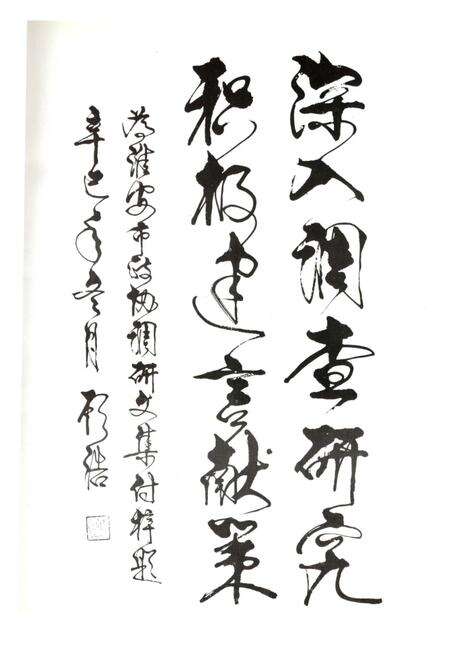 深入调查研究
积极建言献策
为淮安市政协调研文集付梓题
辛巳年冬月 顾浩